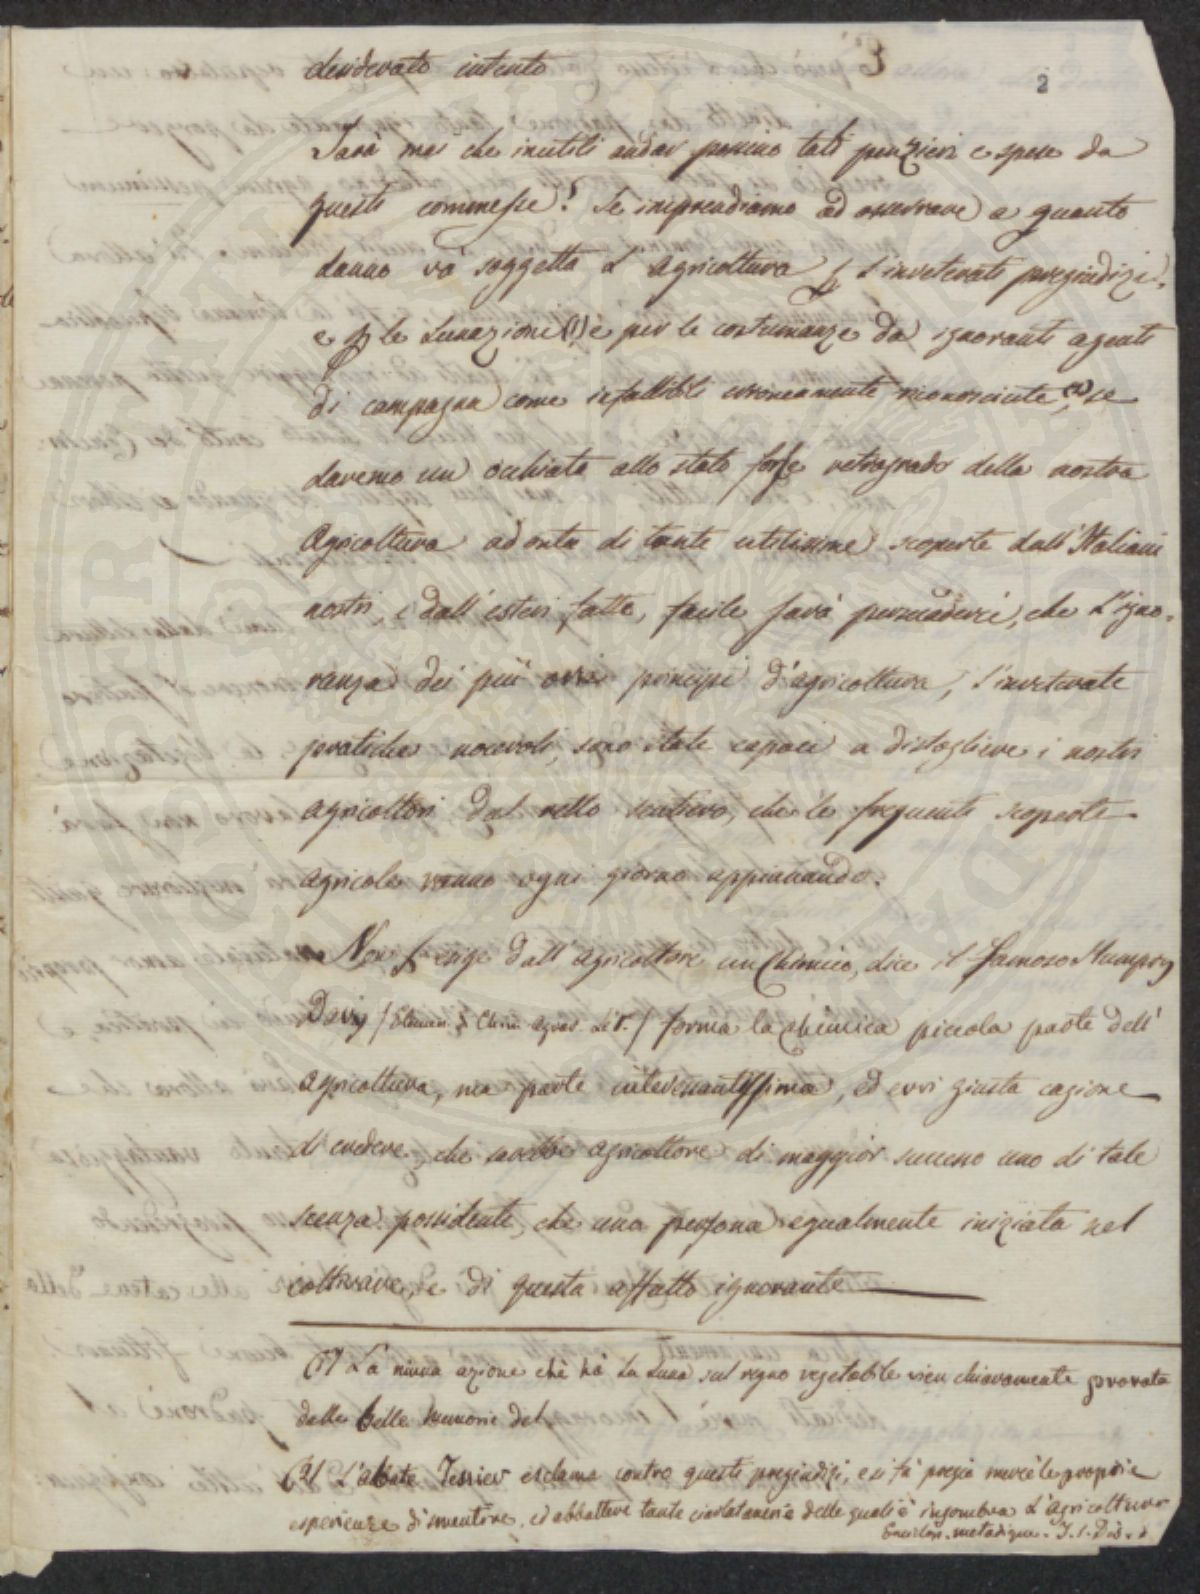 3
2
desiderato intento
Sarà mai che inutili andar possino tali penzieri e spese da
questi commesse? Se imprendiamo ad osservare a quanto
danno và soggetta l'agricoltura p. l'inveterati pregiudizi,
e p. le Lunazione (1) e per le costumanze da ignoranti agenti
di campagna come infallibili erroneamente riconosciute (2), se
daremo un occhiata allo stato forse retrogrado della nostra
Agricoltura ad onta di tante utilissime scoperte dall'Italiani
nostri, e dall'esteri fatte, facile sarà persuaderci, che l'igno-
ranza dei più ovvi principi d'agricoltura, l'inveterate
pratiche nocevoli, sono state capaci a distogliere i nostri
agricoltori dal retto sentiero, che le frequenti scoperte
agricole vanno ogni giorno appianando.
Non si esige dall'agricoltore un Chimico, dice il famoso Humpry
Davy / Elemen. di Chim. agrar. / forma la chimica piccola parte dell'
agricoltura, ma parte interessantissima, ed evvi giusta cagione
di credere, che sarebbe agricoltore di maggior successo uno di tale
scenza possidente, che una persona egualmente iniziata nel
coltivare, e di questa affatto ignorante
(1) La niuna azione che hà la Luna sul regno vegetabile vien chiaramente provata
dalle belle memorie del
(2) L'abate Tessier esclama contro questi pregiudizi, e si fà pregio mercè le proprie
esperienze di smentire, ed abbattere tante ciarlatanerie delle quali è ingombra l'agricoltura
Enciclop. metodique. T. 1.